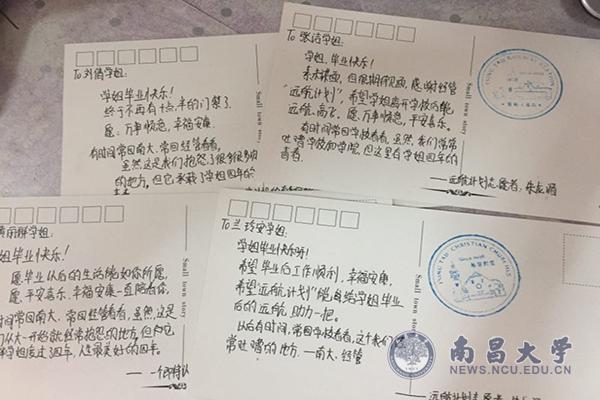 To 刘倩学姐:
学姐毕业快乐!
终于不再有十点半的门禁了.
愿:万事顺意,幸福安康.
有时间常回南大、常回经管看看,
虽然这是我们抱怨了很多很多用
的地方,但它承载了学姐四年的
Small town story
To 张洁学姐:
学姐,毕业快乐!
素未谋面,但很期待见面,感谢经管
"远航计划",希望学姐离开学校仍能
远航,高飞.愿:万事顺意,平安喜乐.
有时间常回学校看看,虽然,我们常常
吐嘈学校和学院,但这里有学姐四年的
青春.
——远航计划志愿者:
Small town story
学姐:
姐毕业快乐!
愿毕业以后的生活能如你所愿,
愿,平安喜乐,幸福安康一直陪着你,
时间常回南大、常回经管看看,虽然,这是
们从大一开始就经常抱怨的地方,但
学姐度过四年,人生最美好的四年.
Small town story
To 兰玲安学姐:
学姐毕业快乐呀!
希望毕业后工作顺利,幸福安康,
希望"远航计划"能够给学姐毕业
后的远航,助力一把.
以后有时间,常回学校看看,这个我们
常吐嘈的地方.——南大、经管
——远航计划志愿者:
Small town story
TUNG TAU CHRISTIAN CHURCH
南昌大学
NEWS.NCU.EDU.CN